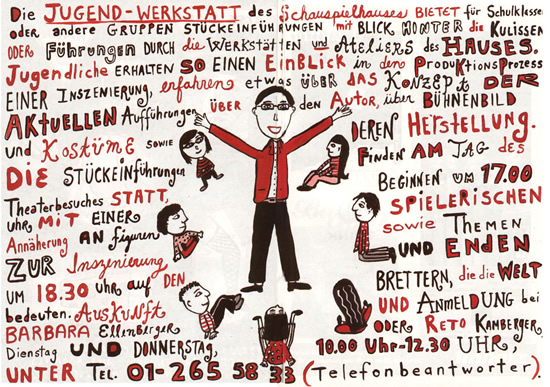 Die JUGEND-WERKSTATT des Schauspielhauses BIETET für Schulklassen
ODER andere GRUPPEN STÜCKEINFÜHRUNGEN mit BLICK HINTER die KULISSEN
ODER Führungen DURCH die WERKSTÄTTEN und Ateliers des HAUSES.
Jugendliche ERHALTEN SO EINEN EinBlick in den ProduKtionsProzess
EINER INSZENIERUNG, erfahren etwas ÜBER DAS KONZEPt DER
AKTUELLEN Aufführungen ÜBER den Autor, über BÜHNENBILD
und KOSTÜME SOWIE DEREN HERSTELLUNG.
DIE STÜCKEINFÜHRUNGEN Finden AM TAG des
Theaterbesuches STATT, BEGINNEN UM 17.00
Uhr MIT EINER SPIELERISCHEN
Annäherung AN Figuren SOWIE THEMEN
ZUR Inszenierung, UND ENDEN
UM 18.30 Uhr auf DEN BRETTERN, die die WELT
bedeuten. AUSKUNFT UND ANMELDUNG bei
BARBARA Ellenberger ODER RETO KAMBERGER,
Dienstag UND DONNERSTAG, 10.00 Uhr-12.30 UHR,
UNTER TEL. 01-265 58 33 (Telefonbeantworter).